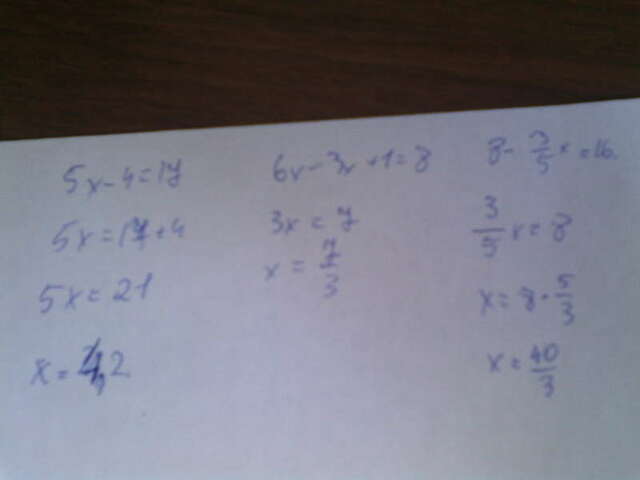 5x-4=17
5x=17+4
5x=21
x=4,2
6x-3x+1=8
3x=7
x=7/3
8-3/5x=16
3/5x=8
x=8·5/3
x=40/3